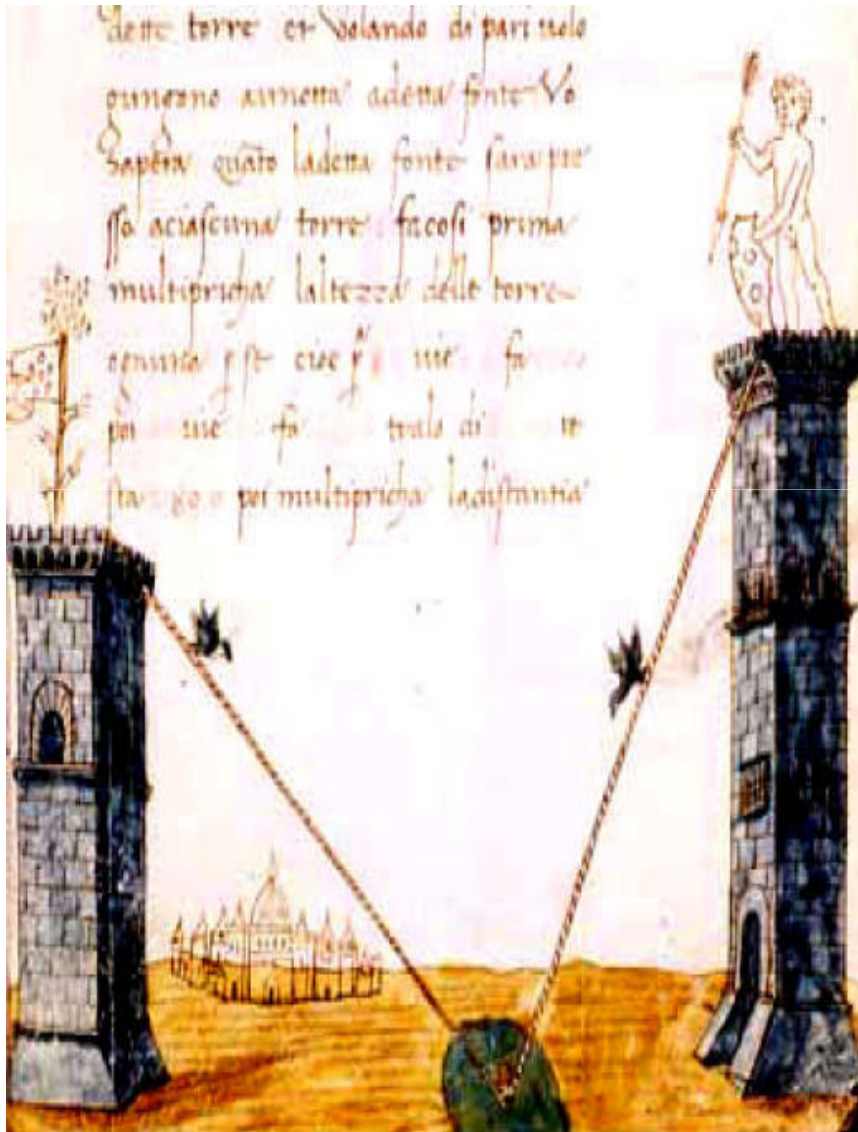 dette torre et volando di pari volo
gungono aunotta adetta fonte Vo
Sapera quāto ladetta fonte sara pre
sso aciascuna torre facosi prima
multipricha laltezza delle torre
ognuna cioe vie fa
poi vie fa tralo di te
sta poi multipricha ladistantia